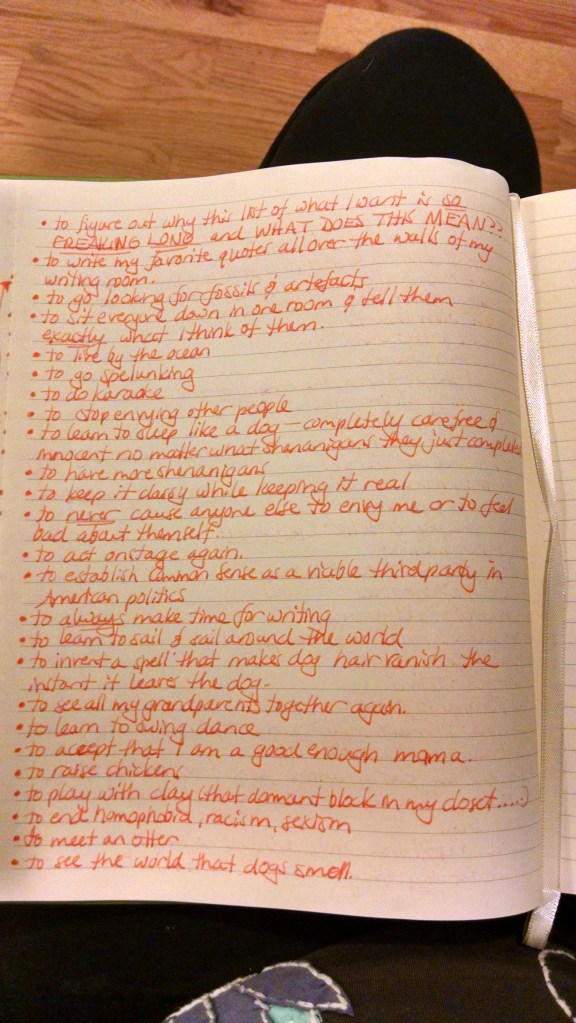 • to figure out why this list of what I want is so
FREAKING LONG and WHAT DOES THIS MEAN??
• to write my favorite quotes all over the walls of my
writing room.
• to go looking for fossils & artefacts
• to sit everyone down in one room & tell them
exactly what I think of them.
• to live by the ocean
• to go spelunking
• to do karaoke
• to stop envying other people
• to learn to sleep like a dog – completely carefree &
innocent no matter what shenanigans they just completed
• to have more shenanigans
• to keep it classy while keeping it real
• to never cause anyone else to envy me or to feel
bad about themself.
• to act onstage again.
• to establish Common Sense as a viable third party in
American politics
• to always make time for writing
• to learn to sail & sail around the world
• to invent a spell that makes dog hair vanish the
instant it leaves the dog.
• to see all my grandparents together again.
• to learn to swing dance
• to accept that I am a good enough mama.
• to raise chickens
• to play with clay (that dormant block in my closet....)
• to end homophobia, racism, sexism
• to meet an otter
• to see the world that dogs smell.